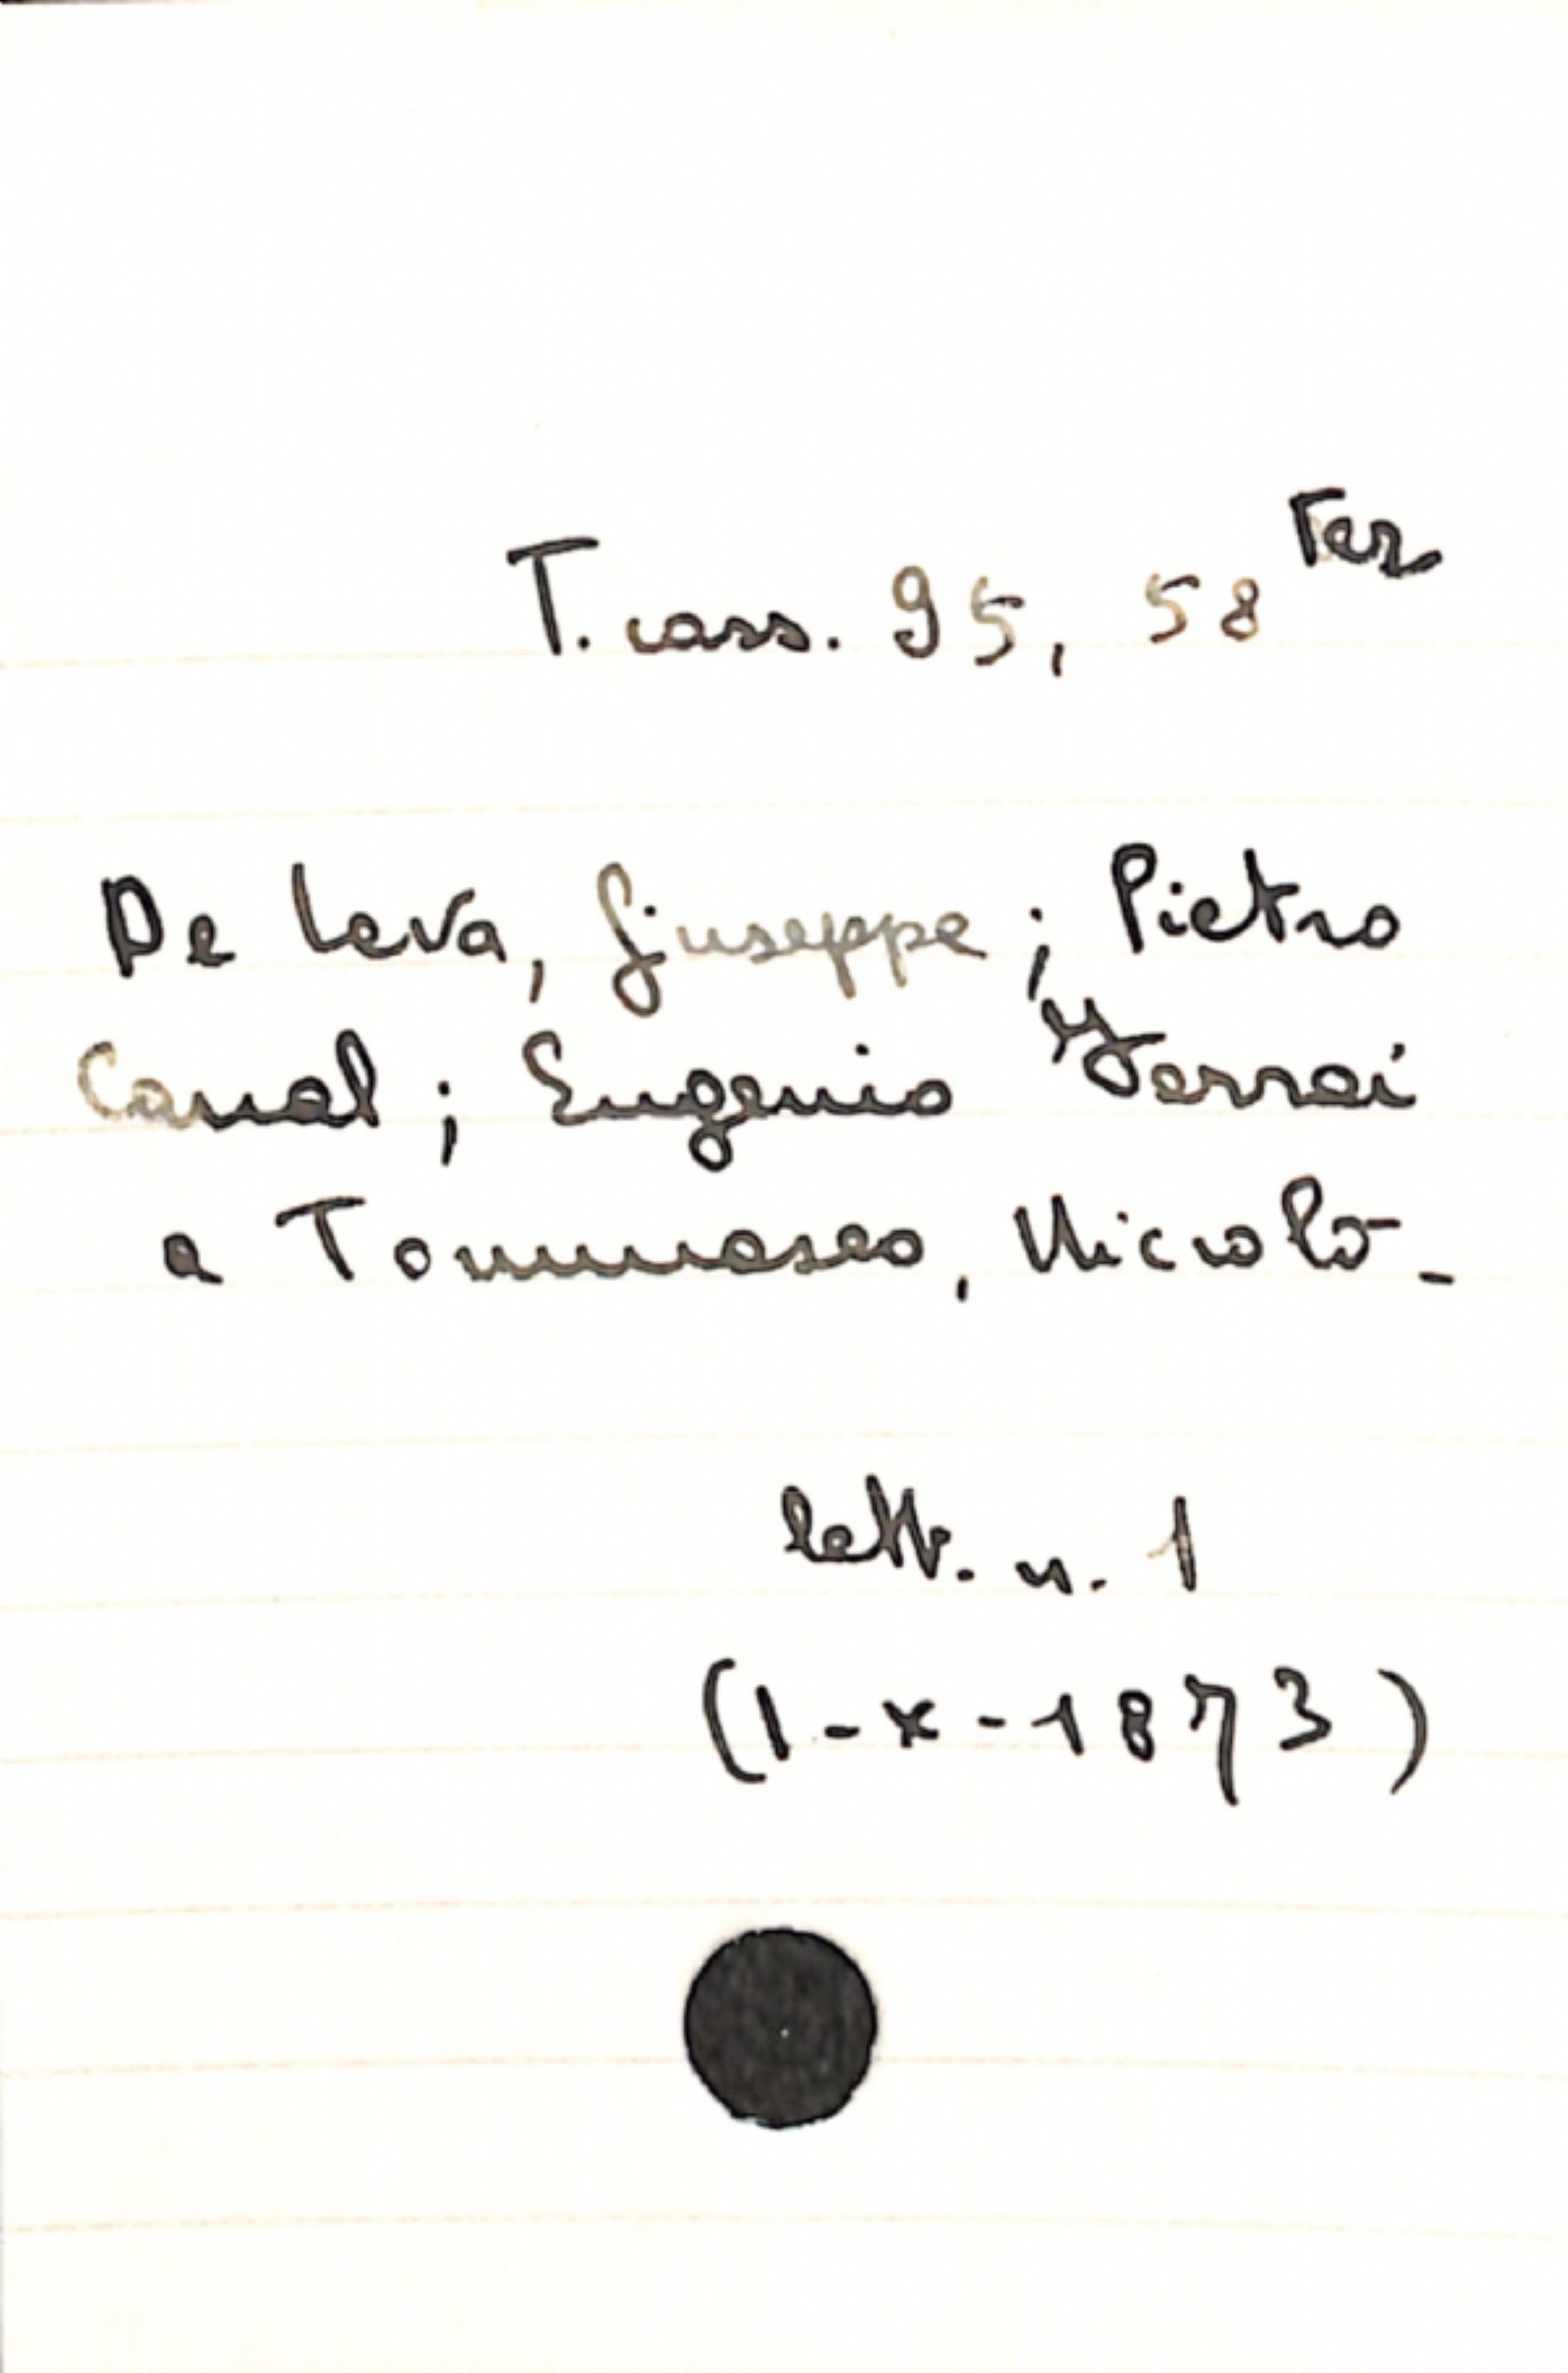 T. cass. 95, 58 Ter
De Leva, Giuseppe ; Pietro
Canal ; Eugenio Ferrai
a Tommaseo, Niccolò -
lett. n. 1
(1-X-1873)